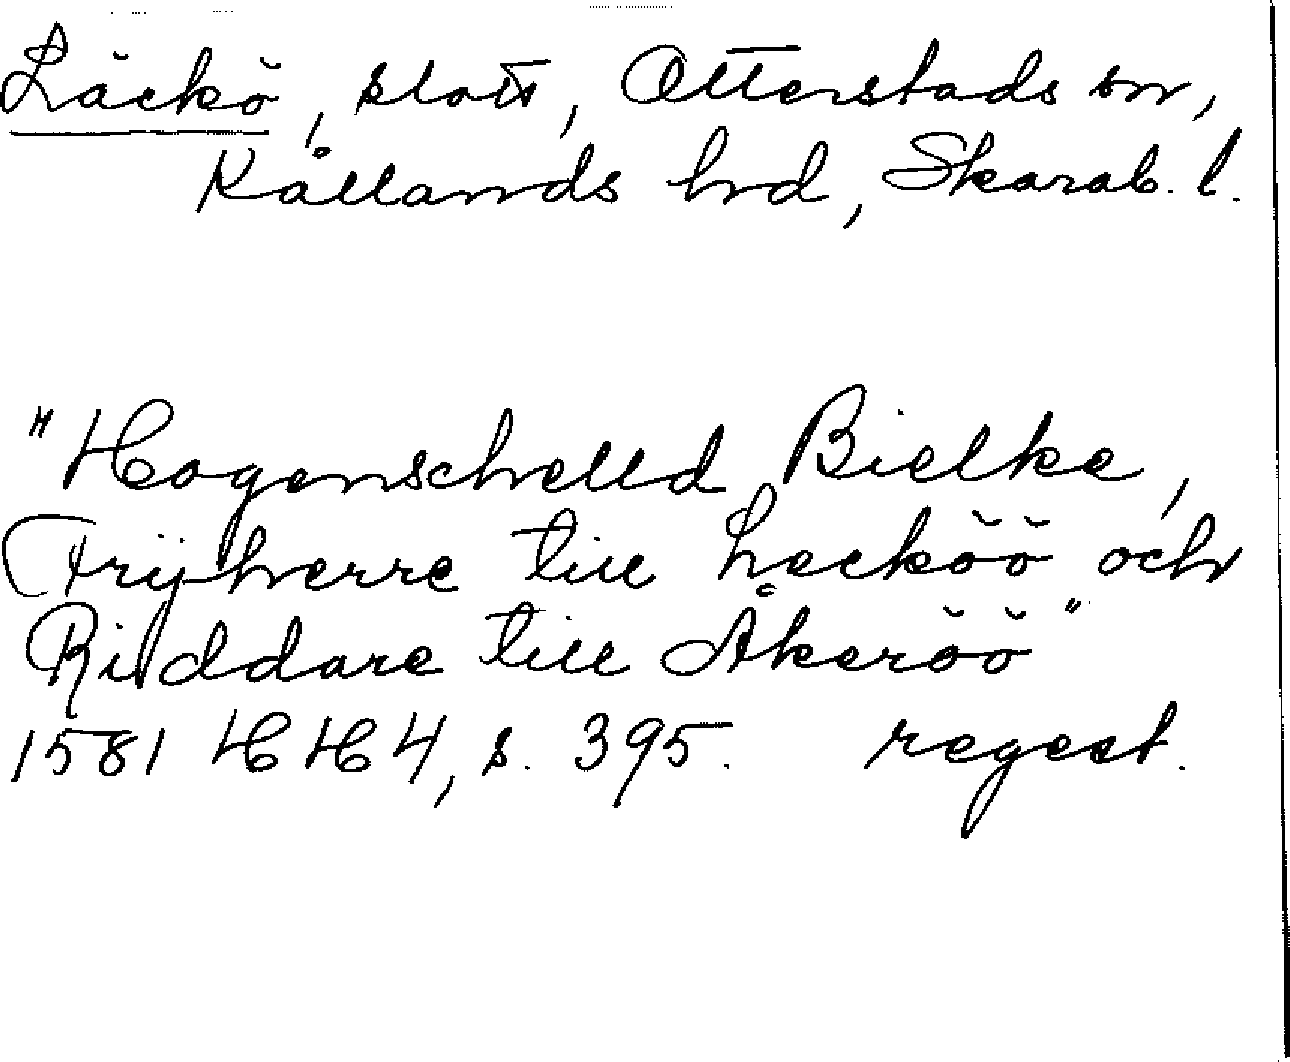 Läckö, slott, Otterstads sn,
Kållands hrd, Skarab. l.
"Hogenschelld Bielke,
Frijherre till Lecköö och
Riddare till Åkeröö"
1581 HH 4, s. 395. regest.